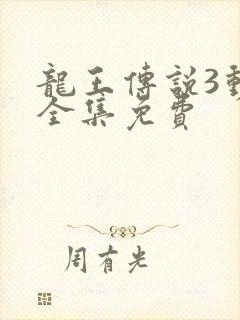 龍王傳說3動
全集免費
周有光